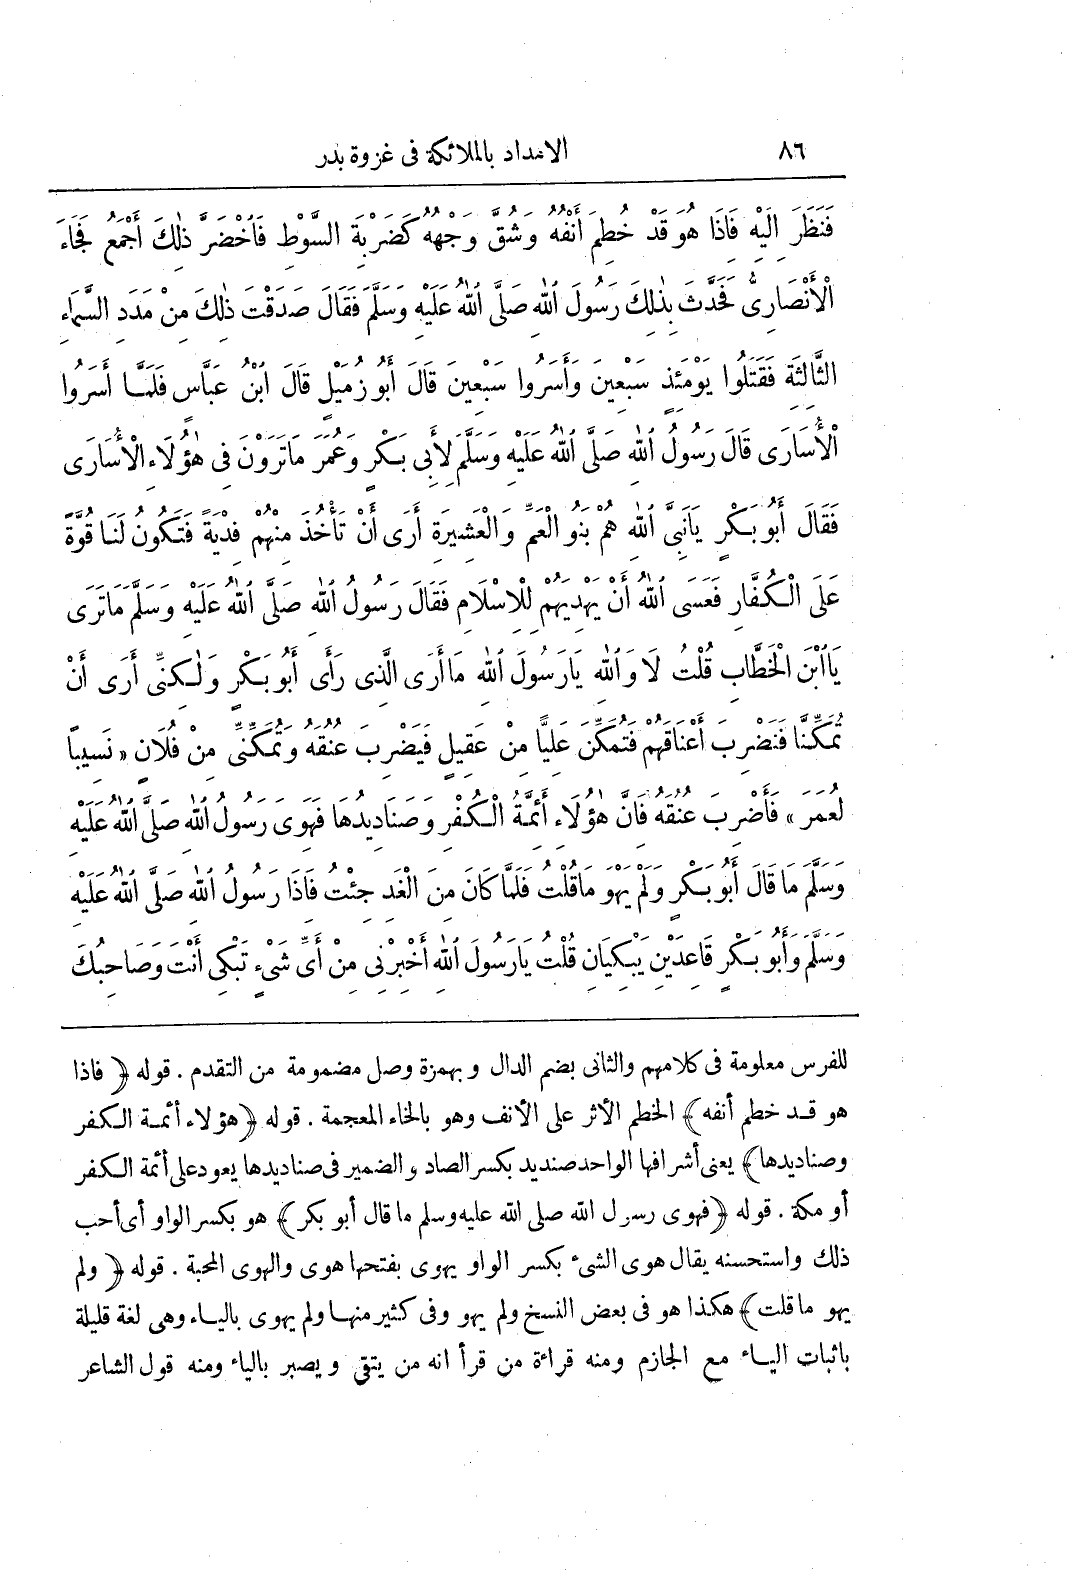 ٨٦ الامداد بالملائكة فى غزوة بدر
فَنَظَرَ الَيْهِ فَاذَا هُوَ قَدْ خُطِمَ أَنْفُهُ وَشُقَّ وَجْهُهُ كَضَرْبَةِ السَّوْطِ فَاٌخْضَرَّ ذٰلِكَ أَجْمَعُ فَجَاءَ
الْأَنْصَارِىُّ فَحَدَّثَ بِذٰلِكَ رَسُولَ ٱللهِ صَلَّى ٱللهُ عَلَيْهِ وَسَلَّمَ فَقَالَ صَدَقْتَ ذٰلِكَ مِنْ مَدَدِ السَّمَاءِ
الثَّالِثَةِ فَقَتَلُوا يَوْمَئِذٍ سَبْعِينَ وَأَسَرُوا سَبْعِينَ قَالَ أَبُو زُمَيْلٍ قَالَ ٱبْنُ عَبَّاسٍ فَلَمَّا أَسَرُوا
الْأُسَارَى قَالَ رَسُولُ ٱللهِ صَلَّى ٱللهُ عَلَيْهِ وَسَلَّمَ لِأَبِى بَكْرٍ وَعُمَرَ مَاتَرَوْنَ فِى هٰؤُلَاءِ الْأُسَارَى
فَقَالَ أَبُو بَكْرٍ يَانَبِىَّ ٱللهِ هُمْ بَنُو الْعَمِّ وَ الْعَشِيرَةِ أَرَى أَنْ تَأْخُذَ مِنْهُمْ فِدْيَةً فَتَكُونُ لَنَا قُوَّةً
عَلَى الْكُفَّارِ فَعَسَى ٱللهُ أَنْ يَهْدِيَهُمْ لِلْاِسْلَامِ فَقَالَ رَسُولُ ٱللهِ صَلَّى ٱللهُ عَلَيْهِ وَسَلَّمَ مَاتَرَى
يَاٱبْنَ الْخَطَّابِ قُلْتُ لَا وَٱللهِ يَارَسُولَ ٱللهِ مَاأَرَى الَّذِى رَأَى أَبُو بَكْرٍ وَلٰكِنِّى أَرَى أَنْ
تُمَكِّنَّا فَنَضْرِبَ أَعْنَاقَهُمْ فَتُمَكِّنَ عَلِيًّا مِنْ عَقِيلٍ فَيَضْرِبَ عُنُقَهُ وَتُمَكِّنِّى مِنْ فُلَانٍ « نَسِيبًا
لِعُمَرَ » فَأَضْرِبَ عُنُقَهُ فَانَّ هٰؤُلَاءِ أَئِمَّةُ الْكُفْرِ وَصَنَادِيدُهَا فَهَوِىَ رَسُولُ ٱللهِ صَلَّى ٱللهُ عَلَيْهِ
وَسَلَّمَ مَا قَالَ أَبُو بَكْرٍ وَلَمْ يَهْوَ مَاقُلْتُ فَلَمَّا كَانَ مِنَ الْغَدِ جِئْتُ فَاذَا رَسُولُ ٱللهِ صَلَّى ٱللهُ عَلَيْهِ
وَسَلَّمَ وَأَبُو بَكْرٍ قَاعِدَيْنِ يَبْكِيَانِ قُلْتُ يَارَسُولَ ٱللهِ أَخْبِرْنِى مِنْ أَىِّ شَىْءٍ تَبْكِى أَنْتَ وَصَاحِبُكَ
للفرس معلومة فى كلامهم والثانى بضم الدال و بهمزة وصل مضمومة من التقدم . قوله ﴿ فاذا
هو قد خطم أنفه ﴾ الخطم الأثر على الأنف وهو بالخاء المعجمة . قوله ﴿ هؤلاء أئمة الكفر
وصناديدها ﴾ يعنى أشرافها الواحد صنديد بكسر الصاد والضمير فى صناديدها يعود على أئمة الكفر
أو مكة . قوله ﴿ فهوى رسول الله صلى الله عليه وسلم ما قال أبو بكر ﴾ هو بكسر الواو أى أحب
ذلك واستحسنه يقال هوى الشىء بكسر الواو يهوى بفتحها هوى والهوى المحبة . قوله ﴿ ولم
يهو ما قلت ﴾ هكذا هو فى بعض النسخ ولم يهو وفى كثير منها ولم يهوى بالياء وهى لغة قليلة
باثبات الياء مع الجازم ومنه قراءة من قرأ انه من يتقى و يصبر بالياء ومنه قول الشاعر